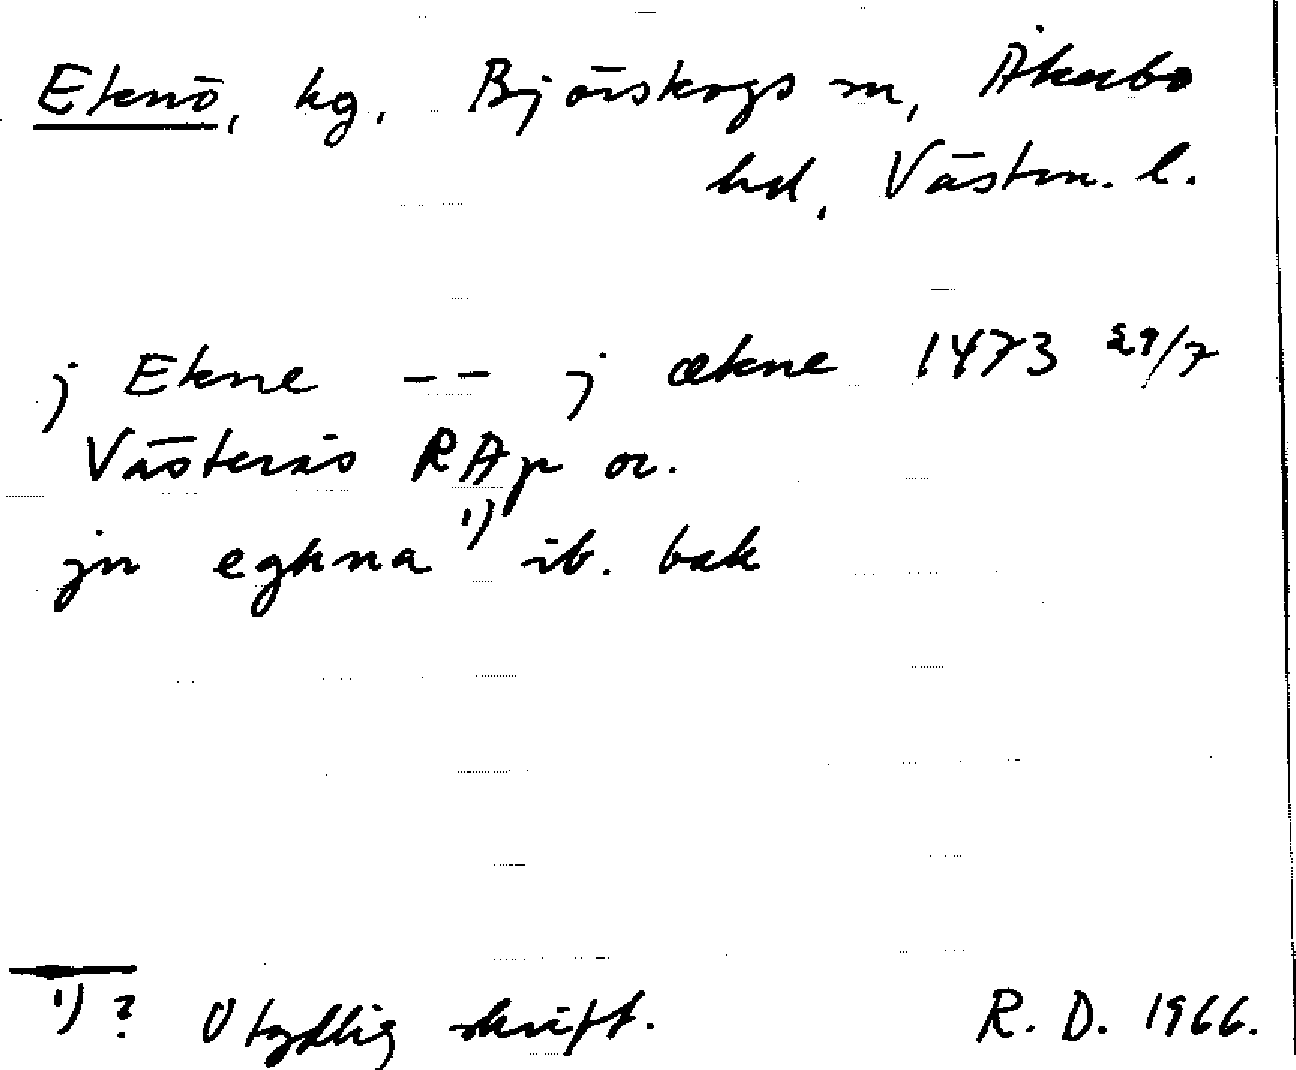 Ekenö, hg. Björskogs sn, Åkerbo
hd, Västm. l.
j Ekne -- j ækne 1473 29/7
Västerås RAp or.
jn eghna 1) ib. bak
1) ? Otydlig skrift. R. D. 1966.